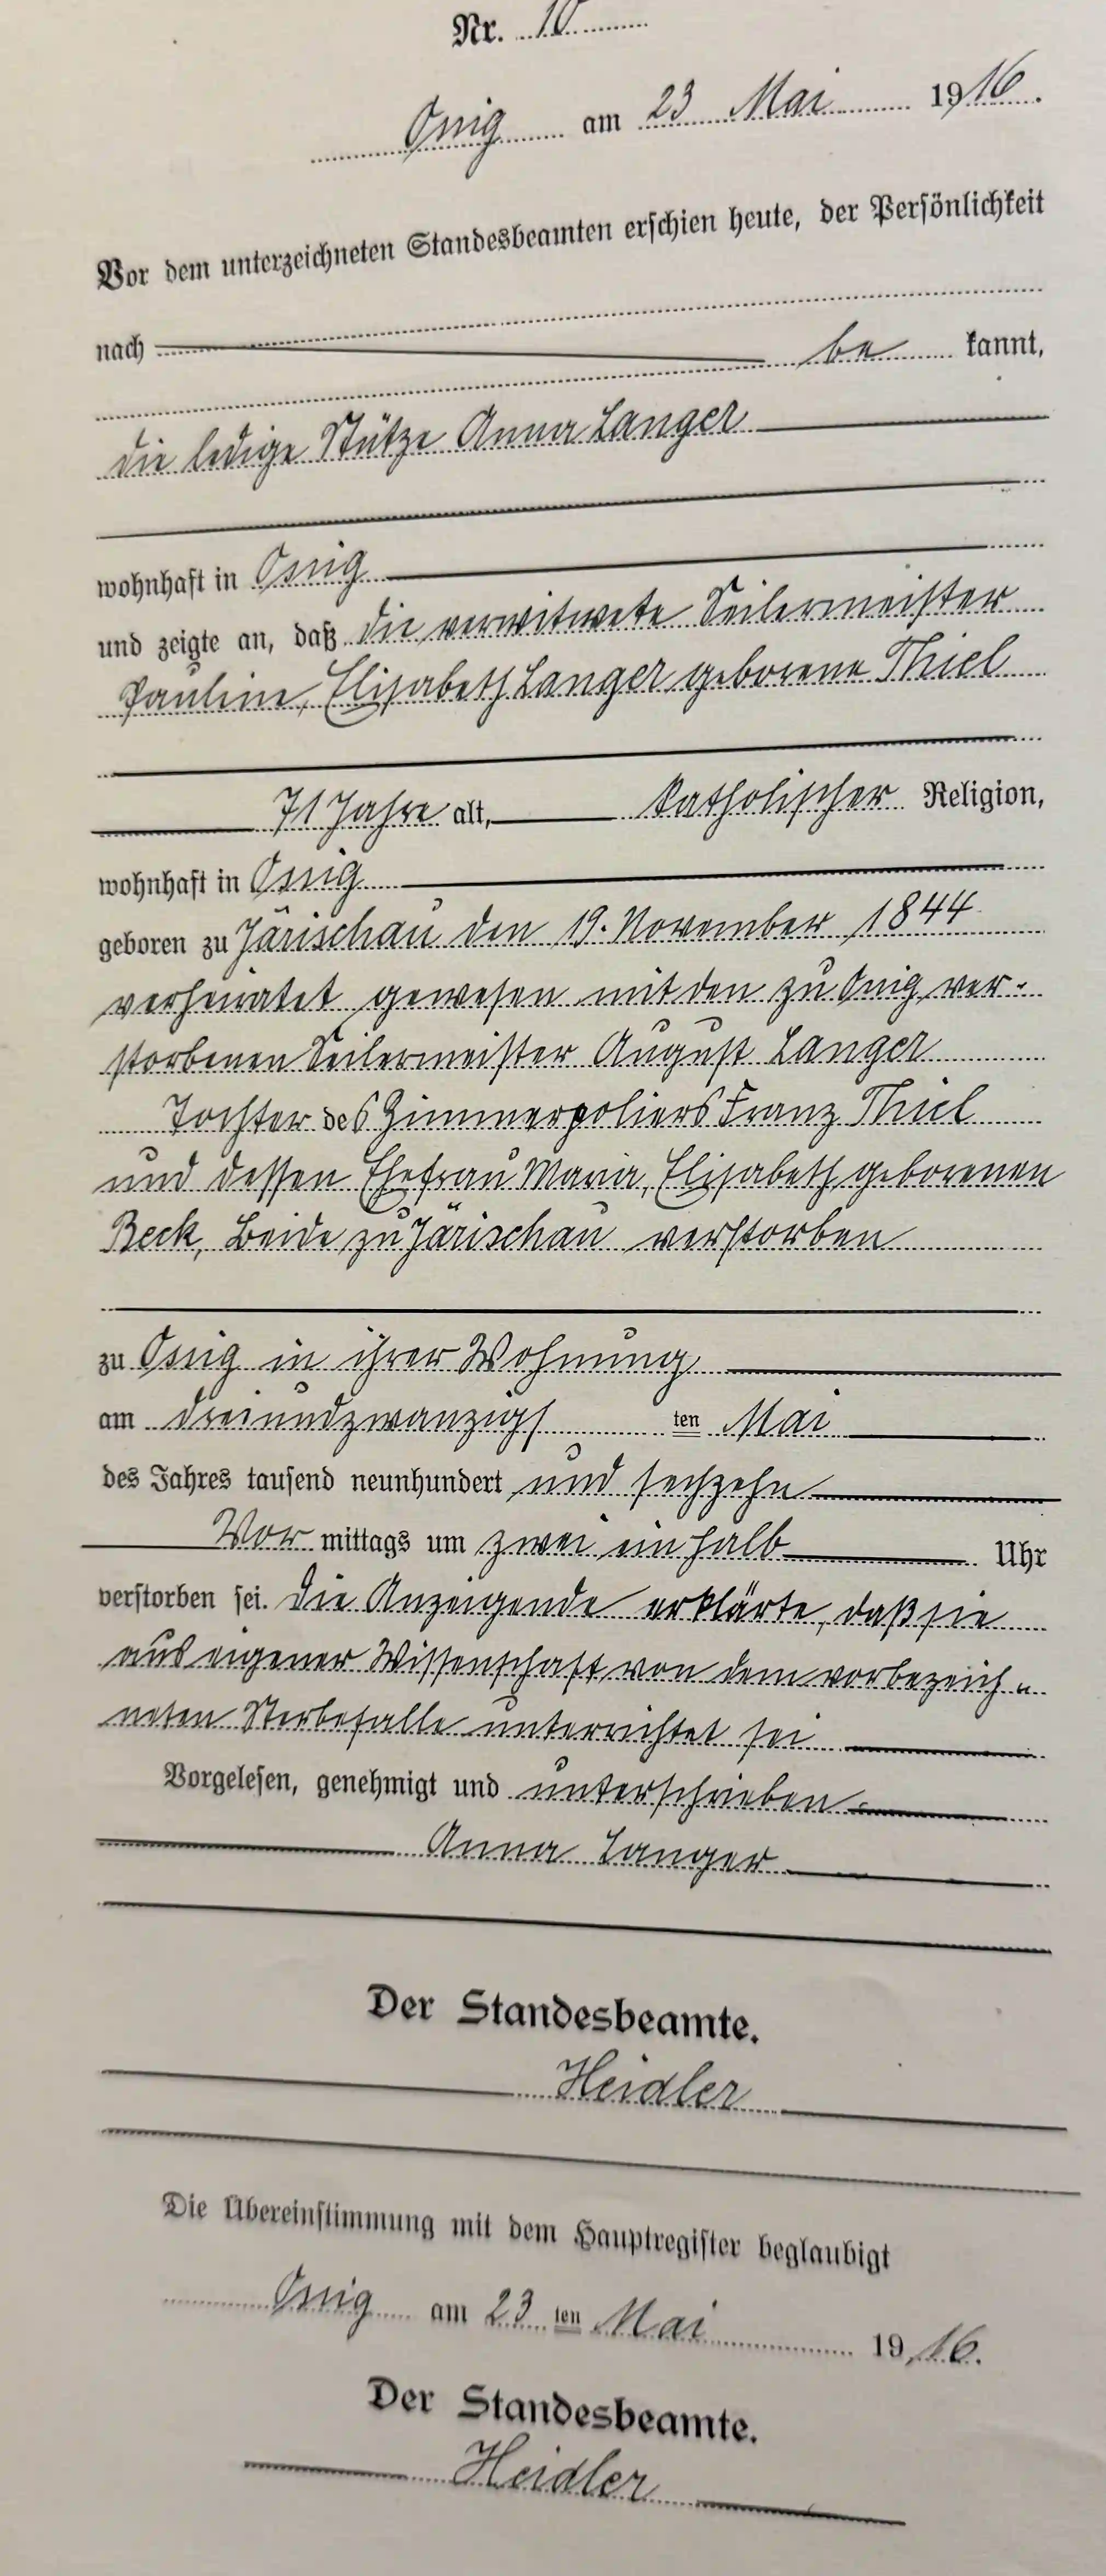 Nr. 10
Ossig am 23 Mai 1916.
Vor dem unterzeichneten Standesbeamten erschien heute, der Persönlichkeit
nach be kannt,
die ledige Stütze Anna Langer
wohnhaft in Ossig
und zeigte an, daß die verwitwete Seilermeister
Pauline, Elisabeth Langer geborene Thiel
71 Jahre alt, katholischer Religion,
wohnhaft in Ossig
geboren zu Järischau den 19. November 1844
verheiratet gewesen mit den zu Ossig ver-
storbenen Seilermeister August Langer
Tochter des Zimmerpoliers Franz Thiel
und dessen Ehefrau Maria, Elisabeth geborenen
Beck, Beide zu Järischau verstorben
zu Ossig in ihrer Wohnung
am dreiundzwanzigs ten Mai
des Jahres tausend neunhundert und sechzehn
Vor mittags um zwei ein halb Uhr
verstorben sei. Die Anzeigende erklärte, daß sie
aus eigener Wissenschaft von dem vorbezeich-
neten Sterbefalle unterrichtet sei
Vorgelesen, genehmigt und unterschrieben
Anna Langer
Der Standesbeamte.
Heidler
Die Übereinstimmung mit dem Hauptregister beglaubigt
Ossig am 23 ten Mai 1916.
Der Standesbeamte.
Heidler